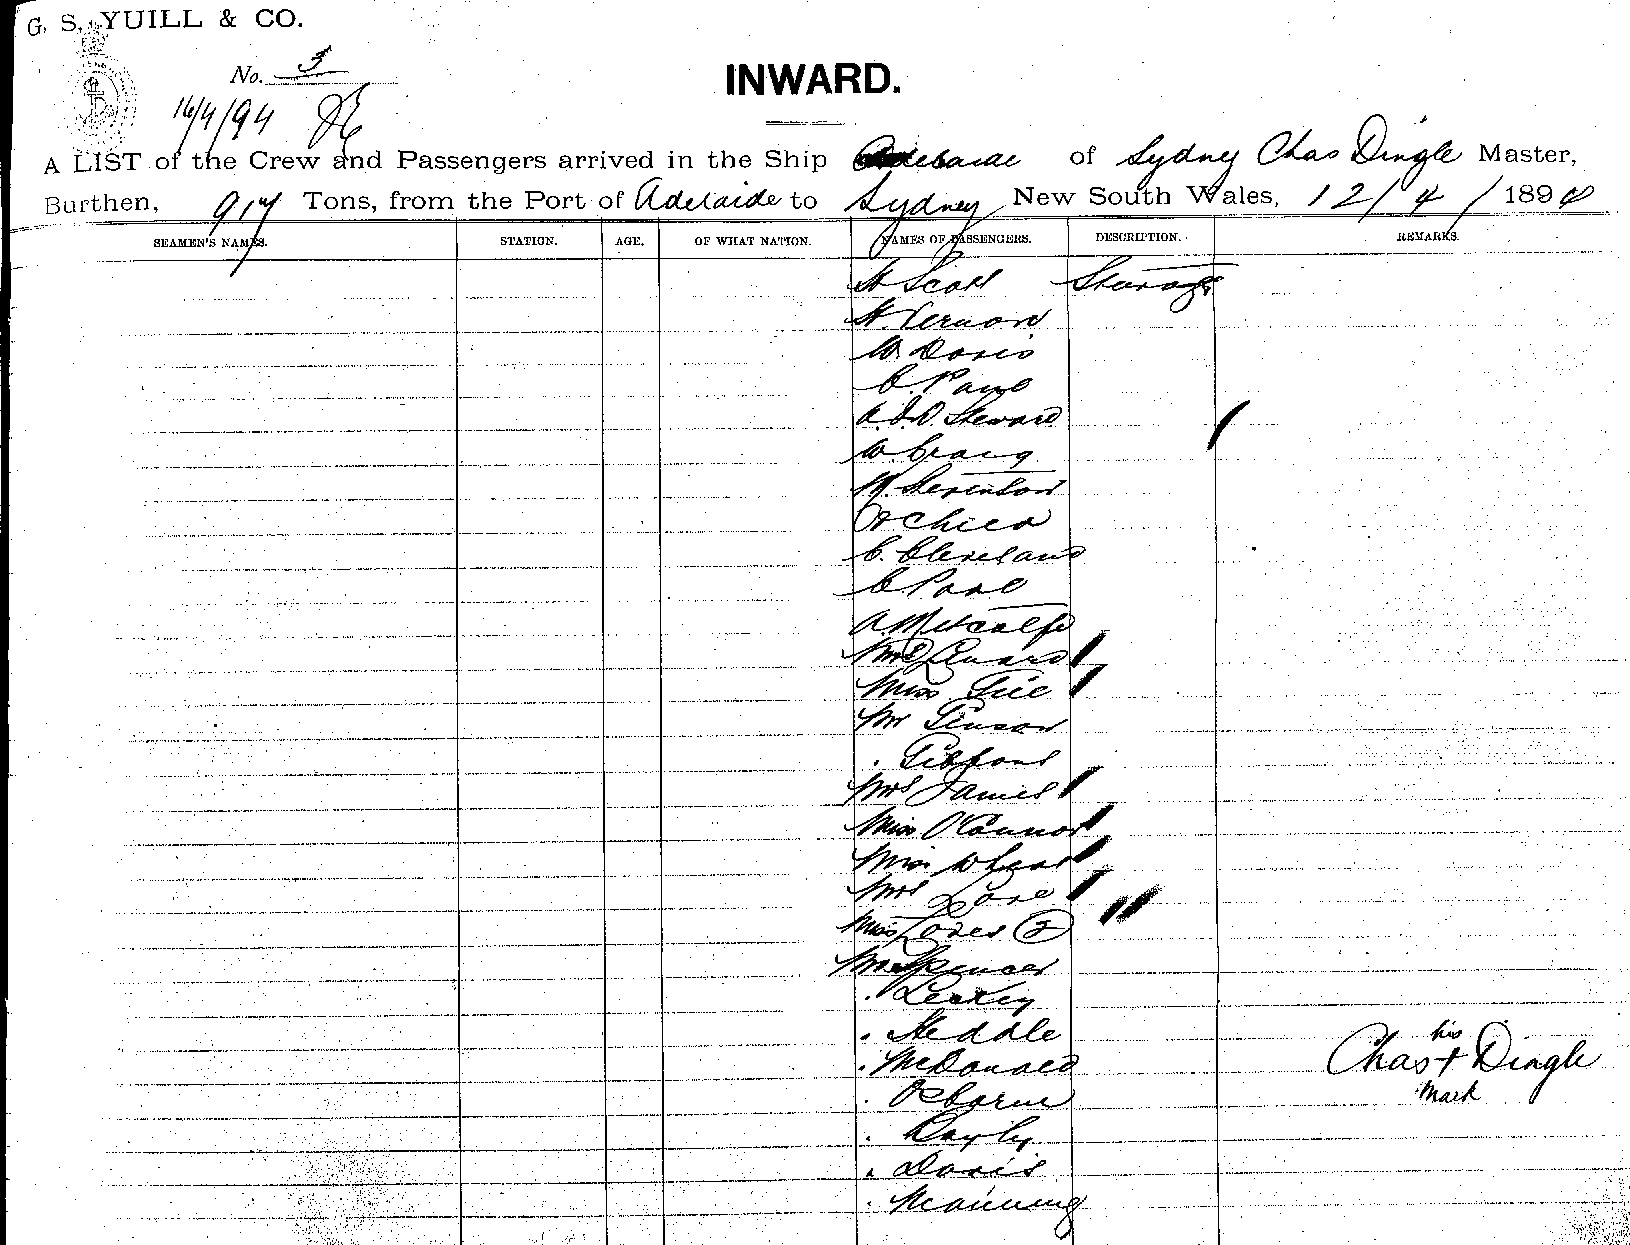 G. S. YUILL & CO.
No. 3
INWARD.
16/4/94
A LIST of the Crew and Passengers arrived in the Ship Adelaide of Sydney Chas Dingle Master,
Burthen, 917 Tons, from the Port of Adelaide to Sydney New South Wales, 12/4/1894
SEAMEN'S NAMES. STATION. AGE. OF WHAT NATION. NAMES OF PASSENGERS. DESCRIPTION. REMARKS.
H Scott Steerage
H. Vernon
W. Davis
C. Payne
Steward
W. Craig
Child
C. Cleveland
A. Metcalfe
Mrs
Miss
Mr
. Gibbons
Mrs James
Miss O'Connor
Miss
Mrs Lane
Miss (2)
Mr Spencer
. Leakey
. Heddle
. McDonald
. Osborne
. Bayly
. Davis
. Manning
his
Chas + Dingle
Mark